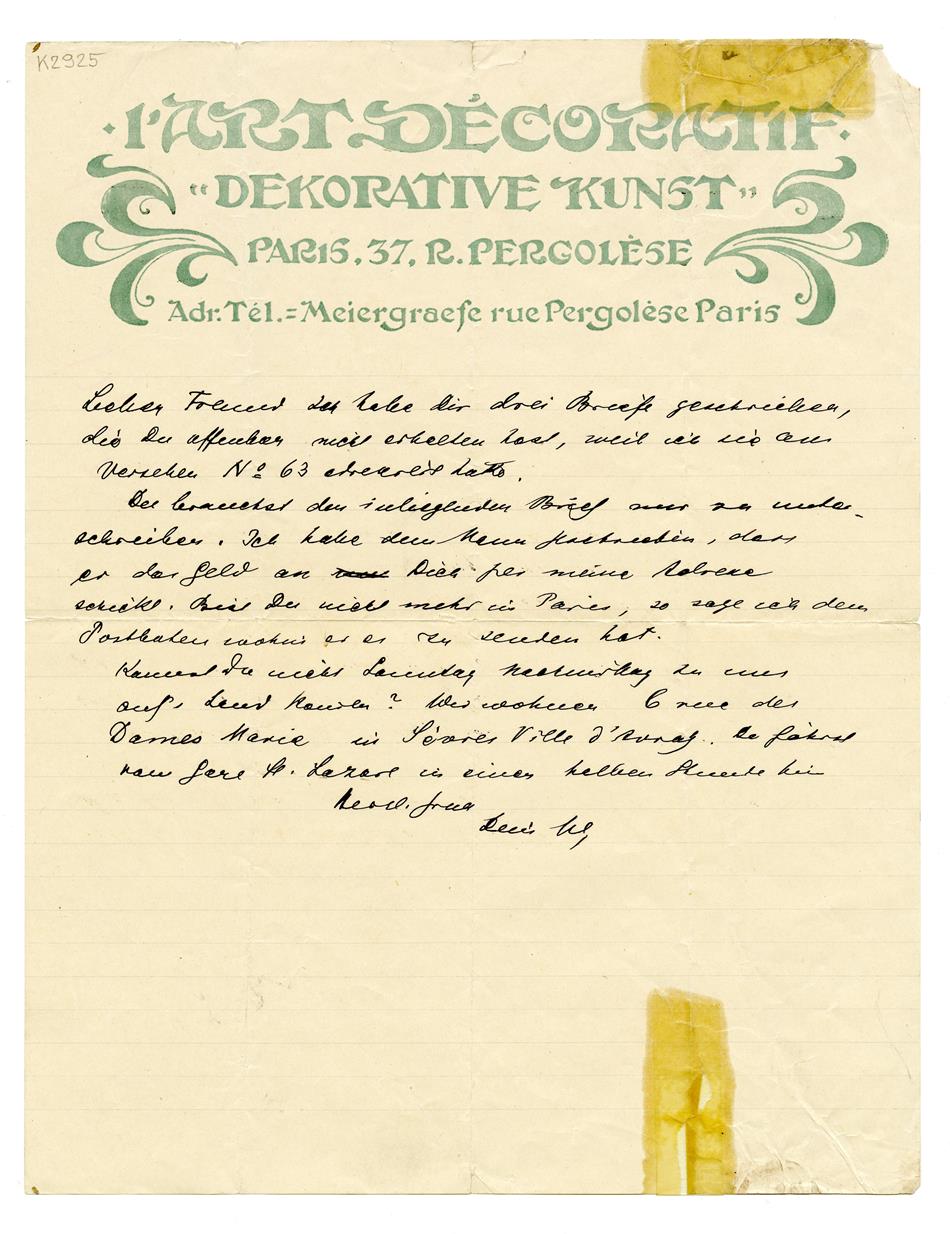 K2925
·l'ART DÉCORATIF·
"DEKORATIVE KUNST"
PARIS, 37, R. PERGOLÈSE
Adr. Tél.=Meiergraefe rue Pergolèse Paris
Lieber Freund Ich habe dir drei Briefe geschrieben,
die Du offenbar nicht erhalten hast, weil ich sie aus
Versehen Nº 63 adressirt hatte.
Du brauchst den inliegenden Brief nur zu unter-
schreiben. Ich habe dem Mann geschrieben, dass
er das Geld an Dich per meine Adresse
schickt. Bist Du nicht mehr in Paris, so sage ich dem
Postboten wohin er es zu senden hat.
Kannst Du nicht Sonntag Nachmittag zu uns
aufs Land kommen? Wir wohnen 6 rue des
Dames Marie in Sèvres Ville d'Avray. Du fährst
von Gare St. Lazare in einer halben Stunde hin
Dein